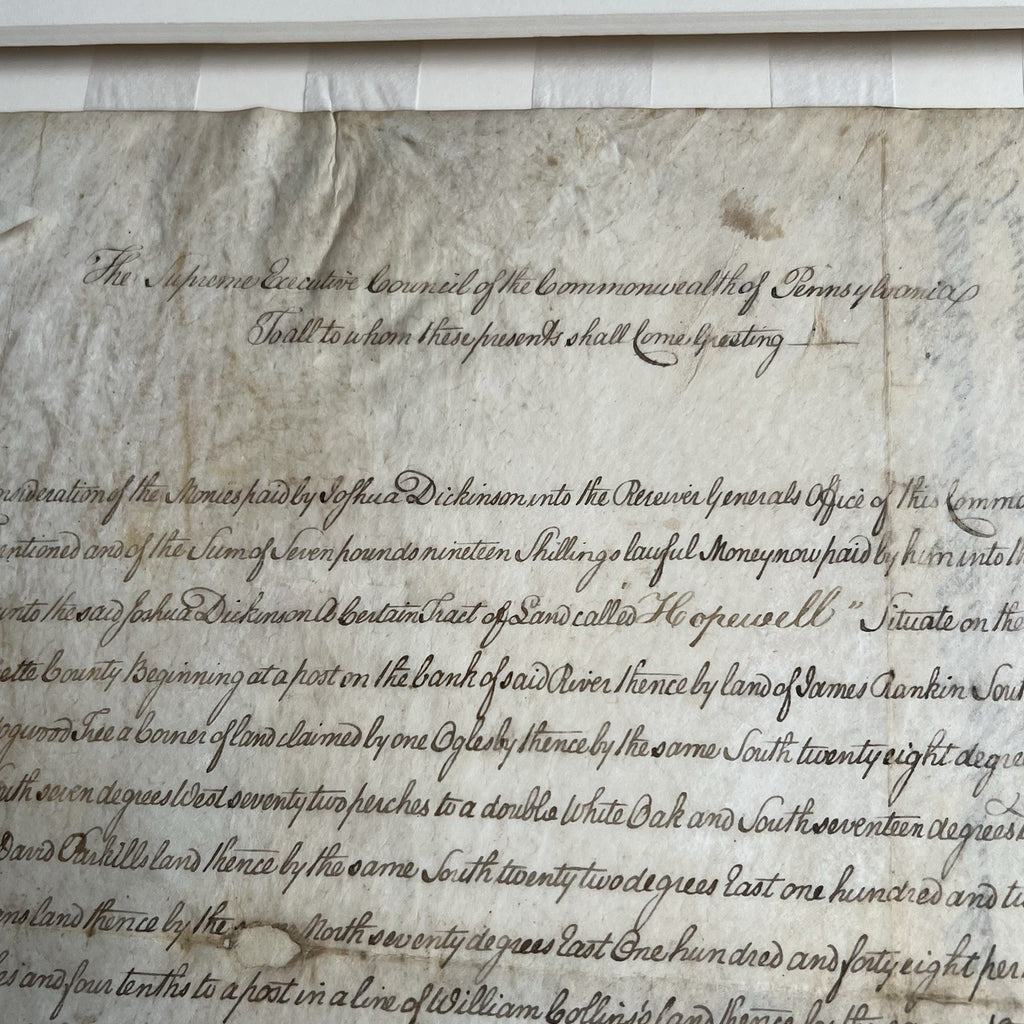 The Supreme Executive Council of the Commonwealth of Pennsylvania
To all to whom these presents shall Come Greeting
nsideration of the Monies paid by Joshua Dickinson into the Receiver Generals Office of this Commo
entioned and of the Sum of Seven pounds nineteen Shillings lawful Money now paid by him into th
unto the said Joshua Dickinson A Certain Tract of Land called "Hopewell" Situate on the
ette County Beginning at a post on the bank of said River thence by land of James Rankin Sout
ogwood Tree a Corner of land claimed by one Oglesby thence by the same South twenty eight degre
outh seven degrees West seventy two perches to a double White Oak and South seventeen degrees
David Parkills land thence by the same South twenty two degrees East one hundred and tw
ens land thence by the North seventy degrees East One hundred and forty eight per
es and four tenths to a post in a line of William Collins's land thence by the